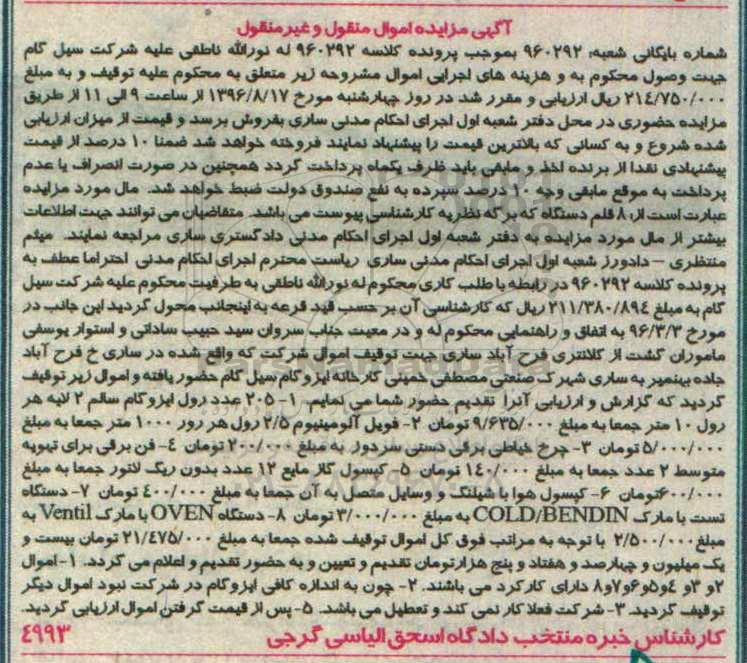 آگهی مزایده اموال منقول و غیر منقول
شماره بایگانی شعبه: ۹۶۰۲۹۲ بموجب پرونده کلاسه ۹۶۰۲۹۲ له نورالله ناطقی علیه شرکت سیل گام
جهت وصول محکوم به و هزینه های اجرایی اموال مشروحه زیر متعلق به محکوم علیه توقیف و به مبلغ
۲۱٤/۷۵۰/۰۰۰ ریال ارزیابی و مقرر شد در روز چهارشنبه مورخ ۱۳۹۶/۸/۱۷ از ساعت ۹ الی ۱۱ از طریق
مزایده حضوری در محل دفتر شعبه اول اجرای احکام مدنی ساری بفروش برسد و قیمت از میزان ارزیابی
شده شروع و به کسانی که بالاترین قیمت را پیشنهاد نمایند فروخته خواهد شد ضمنا ۱۰ درصد از قیمت
پیشنهادی نقدا از برنده اخذ و مابقی باید ظرف یکماه پرداخت گردد همچنین در صورت انصراف یا عدم
پرداخت به موقع مابقی وجه ۱۰ درصد سپرده به نفع صندوق دولت ضبط خواهد شد. مال مورد مزایده
عبارت است از: ۸ قلم دستگاه که برگه نظریه کارشناسی پیوست می باشد. متقاضیان می توانند جهت اطلاعات
بیشتر از مال مورد مزایده به دفتر شعبه اول اجرای احکام مدنی دادگستری ساری مراجعه نمایند. میثم
منتظری – دادورز شعبه اول اجرای احکام مدنی ساری ریاست محترم اجرای احکام مدنی احتراما عطف به
پرونده کلاسه ۹۶۰۲۹۲ در رابطه با طلب کاری محکوم له نورالله ناطقی به طرفیت محکوم علیه شرکت سیل
گام به مبلغ ۲۱۱/۳۸۰/۸۹٤ ریال که کارشناسی آن بر حسب قید قرعه به اینجانب محول گردید این جانب در
مورخ ۹۶/۳/۳ به اتفاق و راهنمایی محکوم له و در معیت جناب سروان سید حبیب ساداتی و استوار یوسفی
ماموران گشت از کلانتری فرح آباد ساری جهت توقیف اموال شرکت که واقع شده در ساری خ فرح آباد
جاده بینمیر به ساری شهرک صنعتی مصطفی خمینی کارخانه ایزوگام سیل گام حضور یافته و اموال زیر توقیف
گردید که گزارش و ارزیابی آنرا تقدیم حضور شما می نمایم. ۱- ۲۰۵ عدد رول ایزوگام سالم ۲ لایه هر
رول ۱۰ متر جمعا به مبلغ ۹/۶۳۵/۰۰۰ تومان ۲- فویل آلومینیوم ۲/۵ رول هر رور ۱۰۰۰ متر جمعا به مبلغ
۵/۰۰۰/۰۰۰ تومان ۳- چرخ خیاطی برقی دستی سردوز به مبلغ ۲۰۰/۰۰۰ تومان ٤- فن برقی برای تهویه
متوسط ۲ عدد جمعا به مبلغ ۱٤۰/۰۰۰ تومان ۵- کپسول گاز مایع ۱۲ عدد بدون ریگ لاتور جمعا به مبلغ
۶۰۰/۰۰۰تومان ۶- کپسول هوا با شیلنگ و وسایل متصل به آن جمعا به مبلغ ٤۰۰/۰۰۰ تومان ۷- دستگاه
تست با مارک COLD/BENDIN به مبلغ ۳/۰۰۰/۰۰۰ تومان ۸- دستگاه OVEN با مارک Ventil به
مبلغ ۲/۵۰۰/۰۰۰ با توجه به مراتب فوق کل اموال توقیف شده جمعا به مبلغ ۲۱/٤۷۵/۰۰۰ تومان بیست و
یک میلیون و چهارصد و هفتاد و پنج هزارتومان تقدیم و تعیین و به حضور تقدیم و اعلام می گردد. ۱- اموال
۲و ۳و ٤و۵و۶و۷و۸ دارای کارکرد می باشند. ۲- چون به اندازه کافی ایزوگام در شرکت نبود اموال دیگر
توقیف گردید. ۳- شرکت فعلا کار نمی کند و تعطیل می باشد. ۵- پس از قیمت گرفتن اموال ارزیابی گردید.
کارشناس خبره منتخب دادگاه اسحق الیاسی گرجی ٤۹۹۳